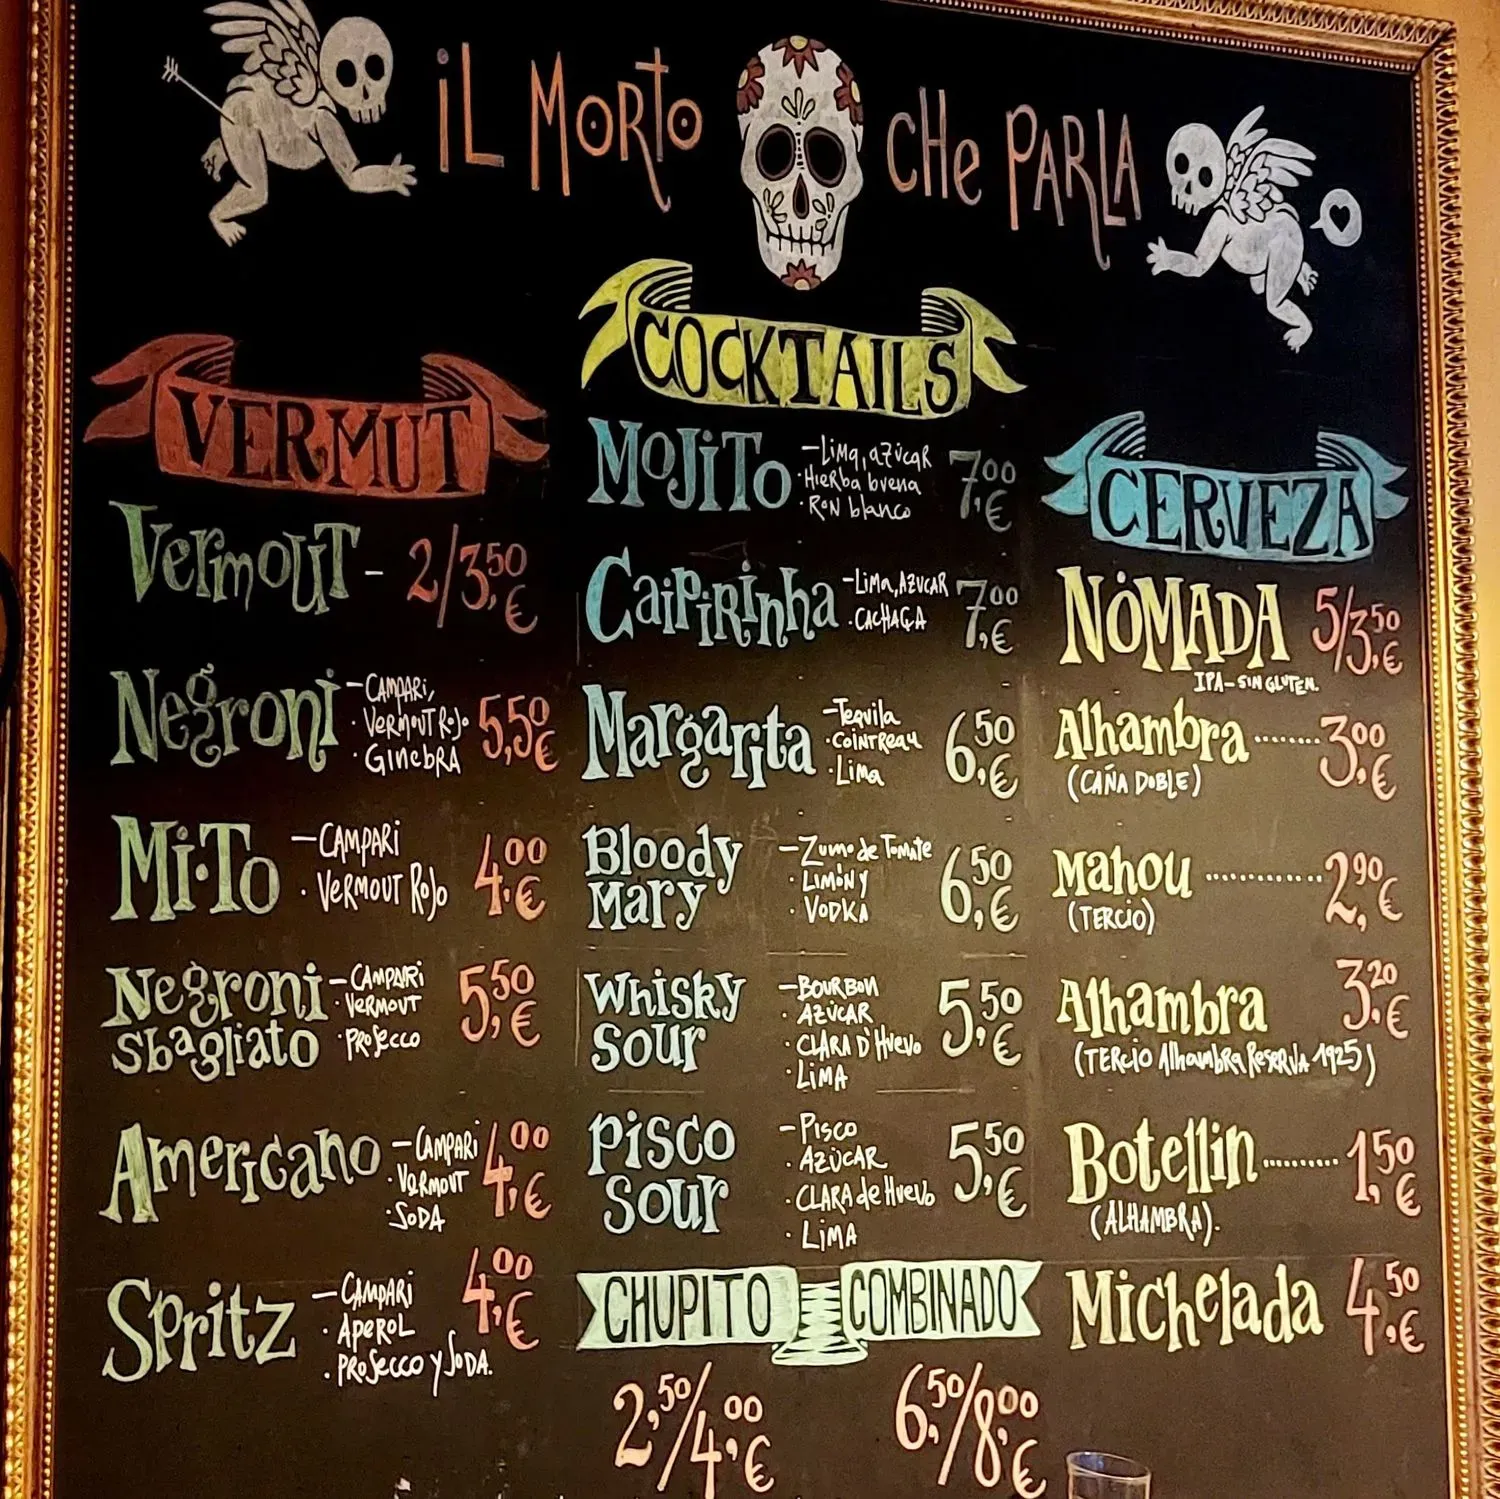 iL MORTO CHE PARLA
VERMUT
VermOUT - 2/3,50 €
Negroni - CAMPARi,
· VERMOUT RoJo
· GinEBRA
5,50 €
Mi·To - CAMPARI
· VERMOUT ROJO
4,00 €
Negroni Sbagliato - CAMPARI
· VERMOUT
· PROSECCO
5,50 €
Americano - CAMPARI
· VERMOUT
· SODA
4,00 €
Spritz - CAMPARI
· APEROL
· PROSECCO y SODA.
4,00 €
COCKTAILS
MOJiTO - Lima, azúcar
· Hierba buena
· Ron blanco
7,00 €
Caipirinha - Lima, AZUCAR
· CACHAÇA
7,00 €
Margarita - Tequila
· Cointreau
· Lima
6,50 €
Bloody Mary - Zumo de Tomate
· LIMÓN y
· VODKA
6,50 €
Whisky Sour - BOURBON
· AZÚCAR
· CLARA D'HUEVO
· LIMA
5,50 €
PISCO Sour - Pisco
· AZÚCAR
· CLARA de HUEVO
· LIMA
5,50 €
CHUPITO COMBINADO
2,50/4,00 € 6,50/8,00 €
CERVEZA
NÓMADA 5/3,50 €
IPA - SIN GLUTEN.
Alhambra ........ 3,00 €
(CAÑA DOBLE)
Mahou ............. 2,90 €
(TERCIO)
Alhambra 3,20 €
(TERCIO Alhambra Reserva 1925)
Botellin .......... 1,50 €
(ALHAMBRA).
Michelada 4,50 €